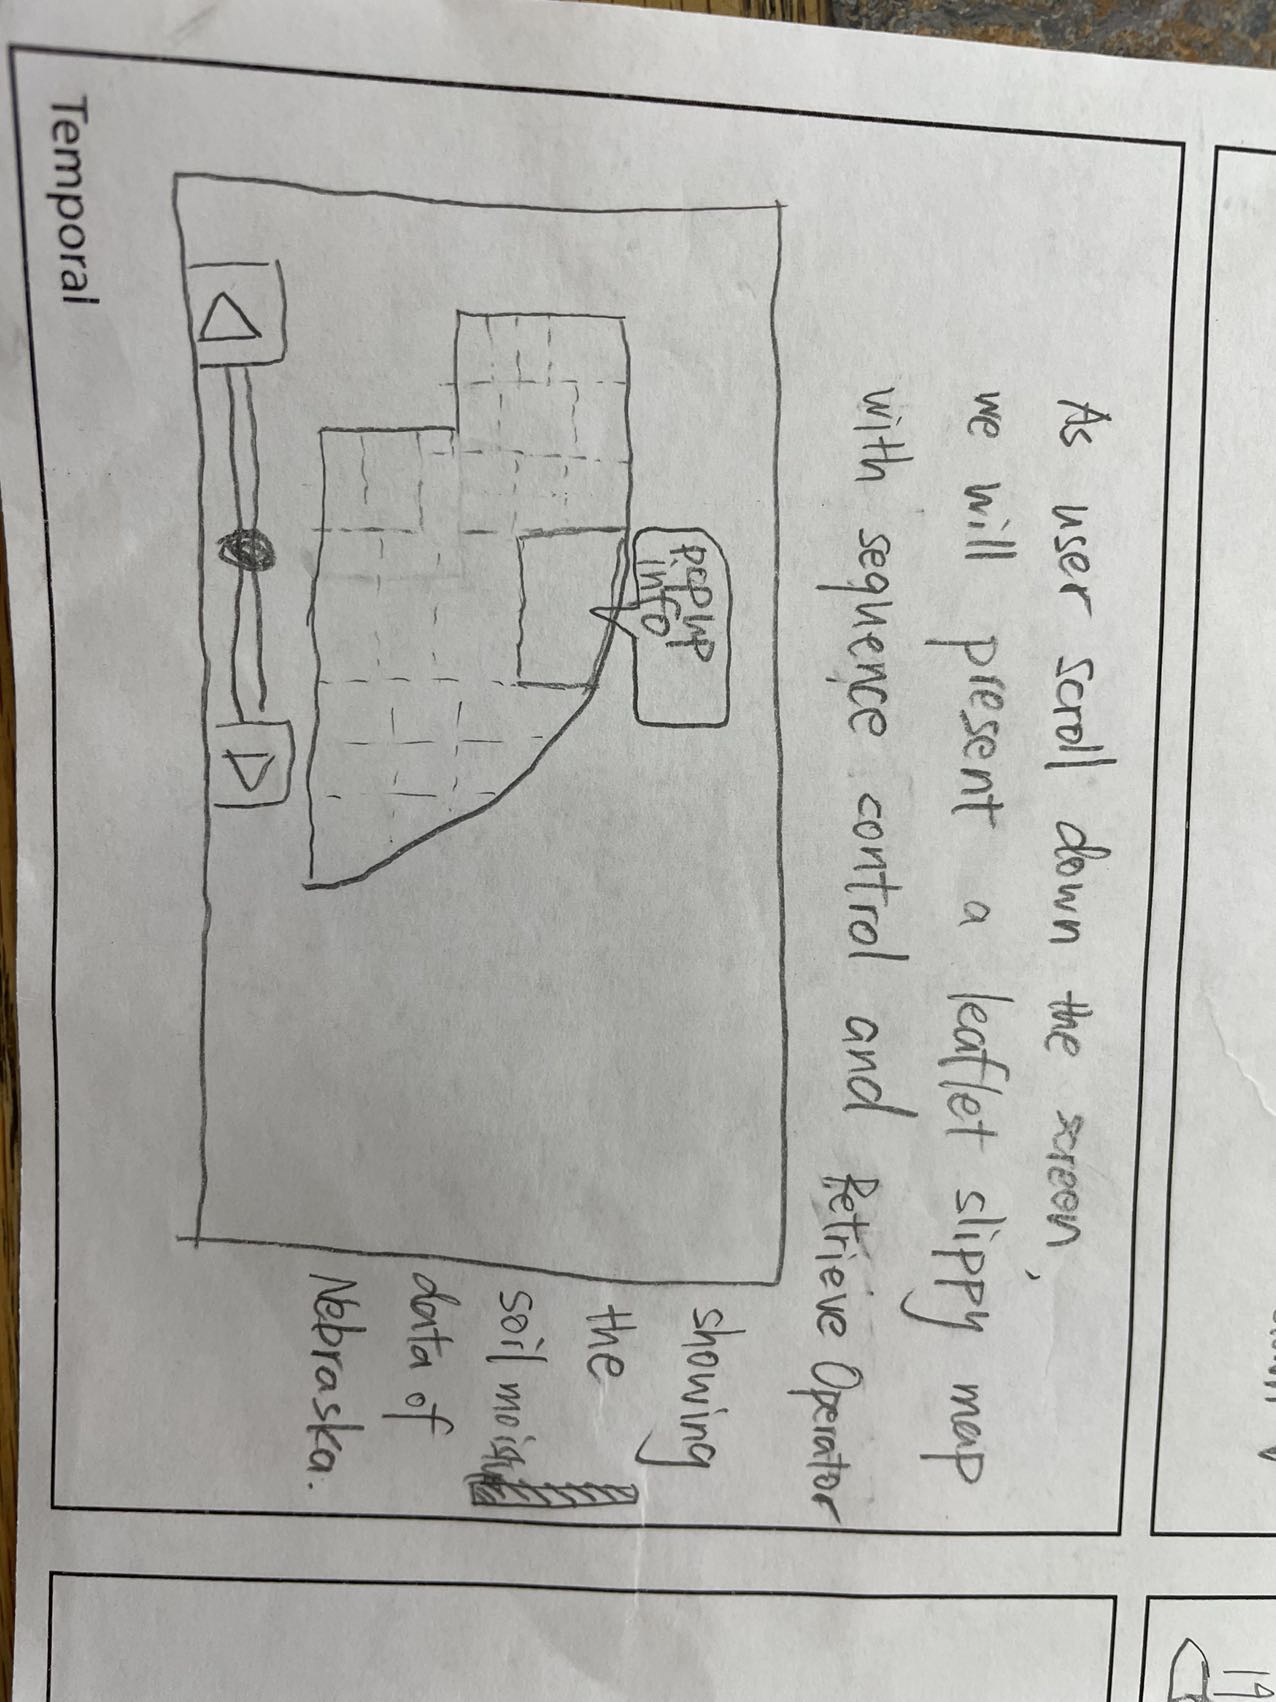 19
As user scroll down the screen,
we will present a leaflet slippy map
with sequence control and Retrieve Operator
showing
the
soil moistu
data of
Nebraska.
popup
info
Temporal